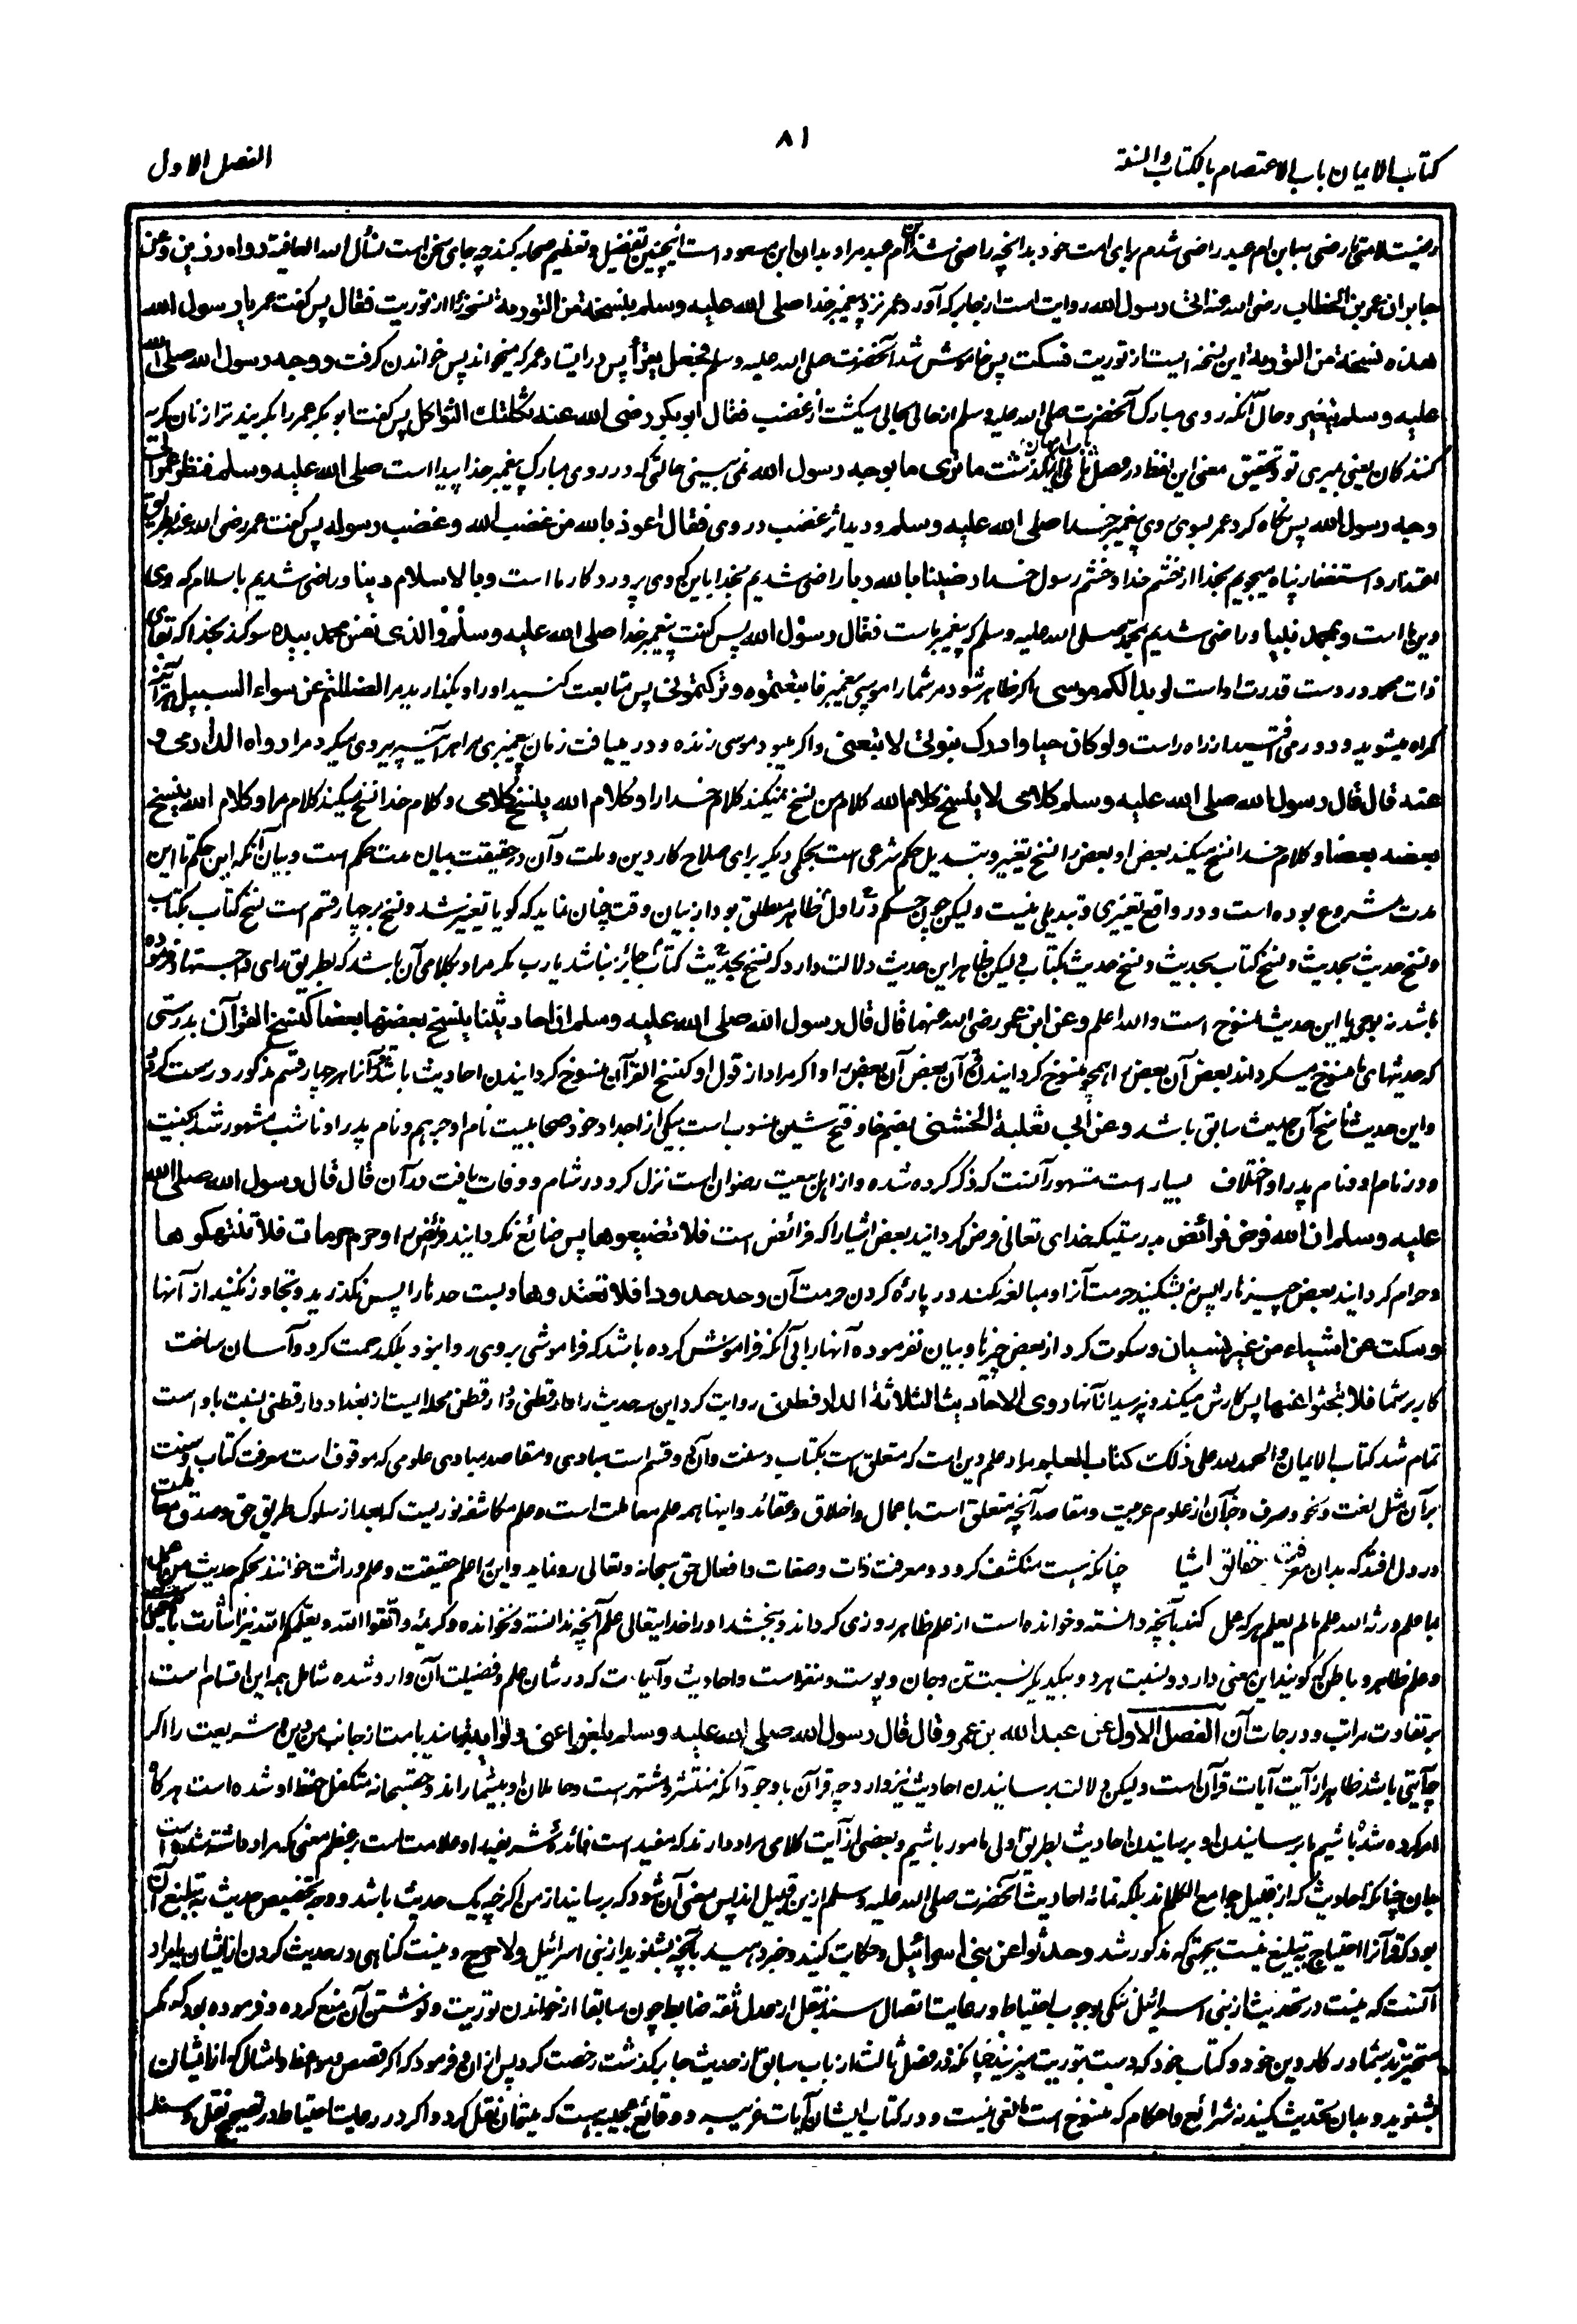 ۸۱
کتاب الایمان باب الاعتصام بالکتاب والسنة
الفصل الاول
رضیت لامتی ما رضی بها ابن ام عبد راضی شدم برای امت خود بدانچه راضی شد ابن ام عبد مراد بدان ابن مسعود است اینچنین تفضیل و تعظیم صحابه کنند چه جای سخن است نسأل الله العافیة رواه رزین وعن
جابر ان عمر بن الخطاب رضی الله عنه اتی رسول الله روایت است از جابر که آورد عمر نزد پیغمبر خدا صلی الله علیه وسلم بنسخة من التوریة نسخه را از توریت فقال پس گفت عمر یا رسول الله
هذه نسخة من التوریة این نسخه ایست از توریت فسکت پس خاموش شد آنحضرت صلی الله علیه وسلم فجعل یقرأ پس در ایستاد عمر که میخواند پس خواندن گرفت ووجه رسول الله صلی الله
علیه وسلم یتغیر وحال آنکه روی مبارک آنحضرت صلی الله علیه وسلم از حالی بحالی میگشت از غضب فقال ابو بکر رضی الله عنه ثکلتک الثواکل پس گفت ابو بکر عمر را بگریند ترا زنان گریه
کنندگان یعنی بمیری تو و تحقیق معنی این لفظ در فصل ثانی از کتاب ایمان گذشت ما تری ما بوجه رسول الله نمی بینی حالتی که در روی مبارک پیغمبر خدا پیدا است صلی الله علیه وسلم فنظر عمر الی
وجه رسول الله پس نگاه کرد عمر بسوی روی پیغمبر خدا صلی الله علیه وسلم و دید اثر غضب در وی فقال اعوذ بالله من غضب الله وغضب رسوله پس گفت عمر رضی الله عنه بطریق
اعتذار و استغفار پناه میجویم بخدا از خشم خدا و خشم رسول خدا رضینا بالله ربا راضی شدیم بخدا باین که وی پروردگار ما است وبالاسلام دینا و راضی شدیم باسلام که وی
دین ما است وبمحمد نبیا و راضی شدیم بمحمد صلی الله علیه وسلم که پیغمبر ماست فقال رسول الله پس گفت پیغمبر خدا صلی الله علیه وسلم والذی نفس محمد بیده سوگند بخدا که بقای
ذات محمد در دست قدرت او است لو بدا لکم موسی اگر ظاهر شود مر شما را موسی پیغمبر فاتبعتموه وترکتمونی پس متابعت کنید او را و بگذارید مرا لضللتم عن سواء السبیل هر آینه
گمراه میشوید و دور می افتید از راه راست ولو کان حیا وادرک نبوتی لاتبعنی و اگر میبود موسی زنده و در مییافت زمان پیغمبری مرا هر آینه پیروی میکرد مرا رواه الدارمی و
عنه قال قال رسول الله صلی الله علیه وسلم کلامی لا ینسخ کلام الله کلام من نسخ نمیکند کلام خدا را وکلام الله ینسخ کلامی و کلام خدا نسخ میکند کلام مرا وکلام الله ینسخ
بعضه بعضا و کلام خدا نسخ میکند بعض او بعض را نسخ تغییر و تبدیل حکم شرعی است بحکمی دیگر برای صلاح کار دین و ملت و آن در حقیقت بیان مدت حکم است و بیان آنکه این حکم تا این
مدت مشروع بوده است و در واقع تغییری و تبدیلی نیست ولیکن چون حکم در اول ظاهر مطلق بود از بیان وقت چنان نماید که گویا تغییر شد و نسخ بر چهار قسم است نسخ کتاب بکتاب
و نسخ حدیث بحدیث و نسخ کتاب بحدیث و نسخ حدیث بکتاب ولیکن ظاهر این حدیث دلالت دارد که نسخ بحدیث کتاب جائز نباشد یا رب مگر مراد بکلامی آن باشد که بطریق رای و اجتهاد فرموده
باشد نه بوحی یا این حدیث منسوخ است والله اعلم وعن ابن عمر رضی الله عنهما قال قال رسول الله صلی الله علیه وسلم ان احادیثنا ینسخ بعضها بعضا کنسخ القرآن بدرستی
که حدیثهای ما منسوخ میگرداند بعض آن بعض را همچو منسوخ گردانیدن قرآن بعض آن بعض را و اگر مراد از قول او کنسخ القرآن منسوخ گردانیدن احادیث باشد قرآن را هر چهار قسم مذکور درست گردد
و این حدیث ناسخ آن حدیث سابق باشد وعن ابی ثعلبة الخشنی بضم خا و فتح شین منسوب است بیکی از اجداد خود صحابیست نام او جرهم و نام پدر او ناشب مشهور شد بکنیت
و در نام او و نام پدر او اختلاف بسیار است مشهور آنست که ذکر کرده شده و از اهل بیعت رضوان است نزل کرد در شام و وفات یافت در آن قال قال رسول الله صلی الله
علیه وسلم ان الله فرض فرائض بدرستیکه خدای تعالی فرض گردانید بعض اشیا را که فرائض است فلا تضیعوها پس ضائع نگردانید فرائض را وحرم حرمات فلا تنتهکوها
و حرام گردانید بعض چیزها را پس نشکنید حرمت آنرا و مبالغه نکنید در پاره کردن حرمت آن وحد حدودا فلا تعتدوها و بست حدها را پس نگذرید و تجاوز نکنید از آنها
وسکت عن اشیاء من غیر نسیان و سکوت کرد از بعض چیزها و بیان نفرموده آنها را بی آنکه فراموش کرده باشد که فراموشی بر وی روا نبود بلکه رحمت کرد و آسان ساخت
کار بر شما فلا تبحثوا عنها پس کاوش میکنید و نپرسید از آنها روی الاحادیث الثلاثة الدارقطنی روایت کرد این سه حدیث را دارقطنی و دارقطن محله ایست از بغداد دارقطنی نسبت باو است
تمام شد کتاب الایمان والحمد لله علی ذلک کتاب العلم مراد علم دین است که متعلق است بکتاب و سنت و آن دو قسم است مبادی و مقاصد مبادی علومی که موقوف است معرفت کتاب و سنت
بر آن مثل لغت و نحو و صرف و جز آن از علوم عربیت و مقاصد آنچه متعلق است باعمال و اخلاق و عقائد و اینها همه علم معاملت است و علم مکاشفه نوریست که بعد از سلوک طریق حق و صدق معاملت
در دل افتد که بدان معرفت حقائق اشیا چنانکه هست منکشف گردد و معرفت ذات و صفات و افعال حق سبحانه و تعالی رو نماید و این را علم حقیقت و علم وراثت خوانند بحکم حدیث من عمل
بما علم ورثه الله علم ما لم یعلم هر که عمل کند بآنچه دانسته و خوانده است از علم ظاهر روزی گرداند و بخشد او را خدایتعالی علم آنچه ندانسته و نخوانده و کریمه واتقوا الله ویعلمکم الله نیز اشارت
و علم ظاهر و باطن که گویند این معنی دارد و نسبت هر دو بیکدیگر نسبت تن و جان و پوست و مغز است و احادیث و آیات که در شان علم و فضیلت آن وارد شده شامل همه این اقسام است
بر تفاوت مراتب و درجات آن الفصل الاول عن عبد الله بن عمرو قال قال رسول الله صلی الله علیه وسلم بلغوا عنی ولو آیة برسانید بامت از جانب من دین و شریعت را اگر
چه آیتی باشد ظاهر از آیت آیات قرآن است ولیکن دلالت برسانیدن احادیث نیز دارد چه قرآن با وجود آنکه منتشر و مشتهر است و حاملان او بیشمار اند و حق سبحانه متکفل حفظ او شده است هرگاه
امر کرده شده باشیم ما برسانیدن او برسانیدن احادیث بطریق اولی مامور باشیم و بعضی از آیت کلامی مراد دارند که مفید است فائده شریفه را و علامت است بر عظم معنی که مراد داشته شده است
بدان چنانکه احادیث که از قبیل جوامع الکلم اند بلکه تمامه احادیث آنحضرت صلی الله علیه وسلم ازین قبیل اند پس معنی آن شود که برسانید از من اگرچه یک حدیث باشد و وجه تخصیص حدیث بتبلیغ آن
بود که قرآن را احتیاج بتبلیغ نیست بجهتی که مذکور شد وحدثوا عن بنی اسرائیل و حکایت کنید و خبر دهید بآنچه بشنوید از بنی اسرائیل ولا حرج و نیست گناهی در حدیث کردن از ایشان مراد
آنست که نیست در تحدیث از بنی اسرائیل تنگی بوجوب احتیاط و رعایت اتصال سند بنقل از عدل ثقه ضابط چون سابقا از خواندن توریت و نوشتن آن منع کرده و فرموده بود که مگر
متحیرند شما در کار دین خود و کتاب خود که دست بتوریت میزنید چنانکه در فصل ثالث از باب سابق از حدیث جابر گذشت رخصت کرد پس ازان و فرمود که اگر قصص و مواعظ و امثال که از ایشان
بشنوید و بدان تحدیث کنید نه شرائع و احکام که منسوخ است مانعی نیست و در کتاب ایشان آیات غریبه و وقائع عجیبه هست که میتوان نقل کرد و اگر در رعایت احتیاط در تصحیح نقل و سند